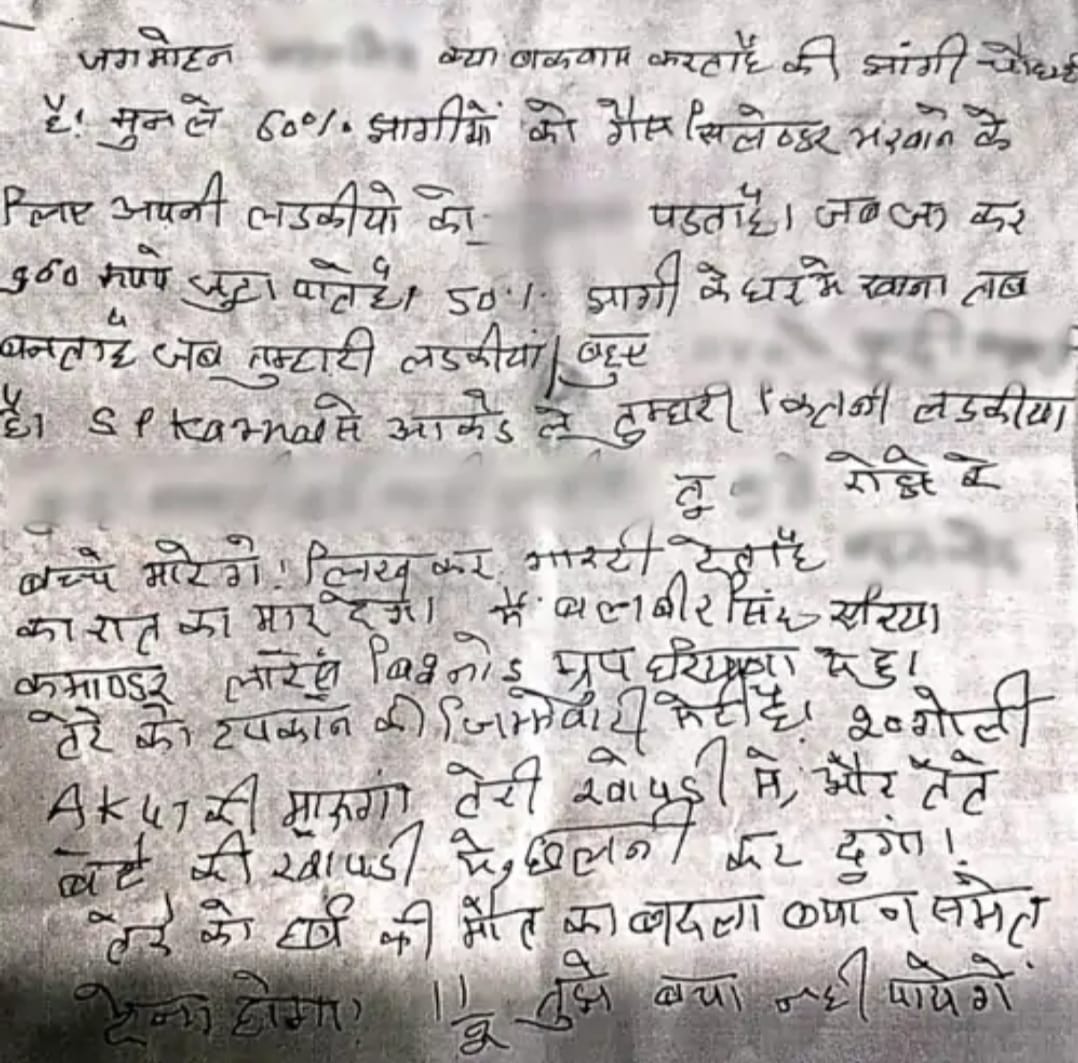 जगमोहन क्या बकवास करता है की झांगी चौधरी
है। सुन ले 60% झागीयों को गैस सिलेण्डर भरवाने के
लिए अपनी लडकीयो को पडता है। जब जा कर
900 रूपये जुटा पाते है। 50% झागी के घर मे खाना तब
बनता है जब तुम्हारी लडकीयां
है। SP Karnal से आकडे ले तुम्हारी कितनी लडकीया
तू रोडो के
बच्चे मारेगे। लिख कर गारन्टी देता है
का रात का मार देगे। मै बलबीर सिंह
कमाण्डर लॉरेंस ग्रुप से हु।
तेरे को टपकान की जिम्मेवारी मेरी है। 20 गोली
AK 47 की मारूगा तेरी खोपडी मे, और तेरे
बेटे की खोपडी मे, छलनी कर दुगा।
तेरे को की मौत का बदला ब्याज समेत
देना होगा। तुझे बचा नही पायेगे